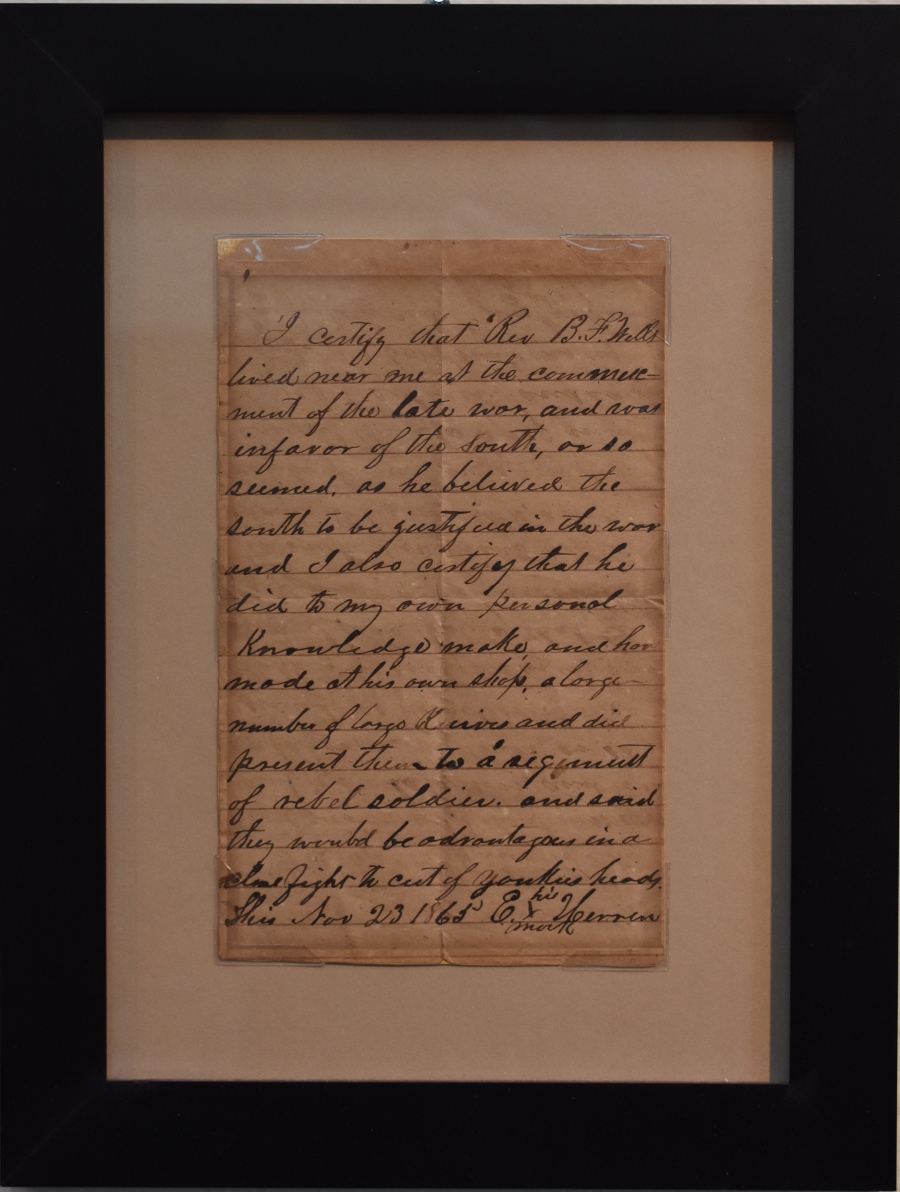 I certify that Rev B. F. Wells
lived near me at the commenc-
ment of the late war, and was
infavor of the south, or so
seemed, as he believed the
south to be justified in the war
and I also certify that he
did to my own personal
Knowledge make, and hav
made at his own shop, a large
number of large Knives and did
present them to a regement
of rebel soldier. and said
they would be advantagous in a
close fight to cut of yankies heads.
This Nov 23 1865 E. his x mark Herren